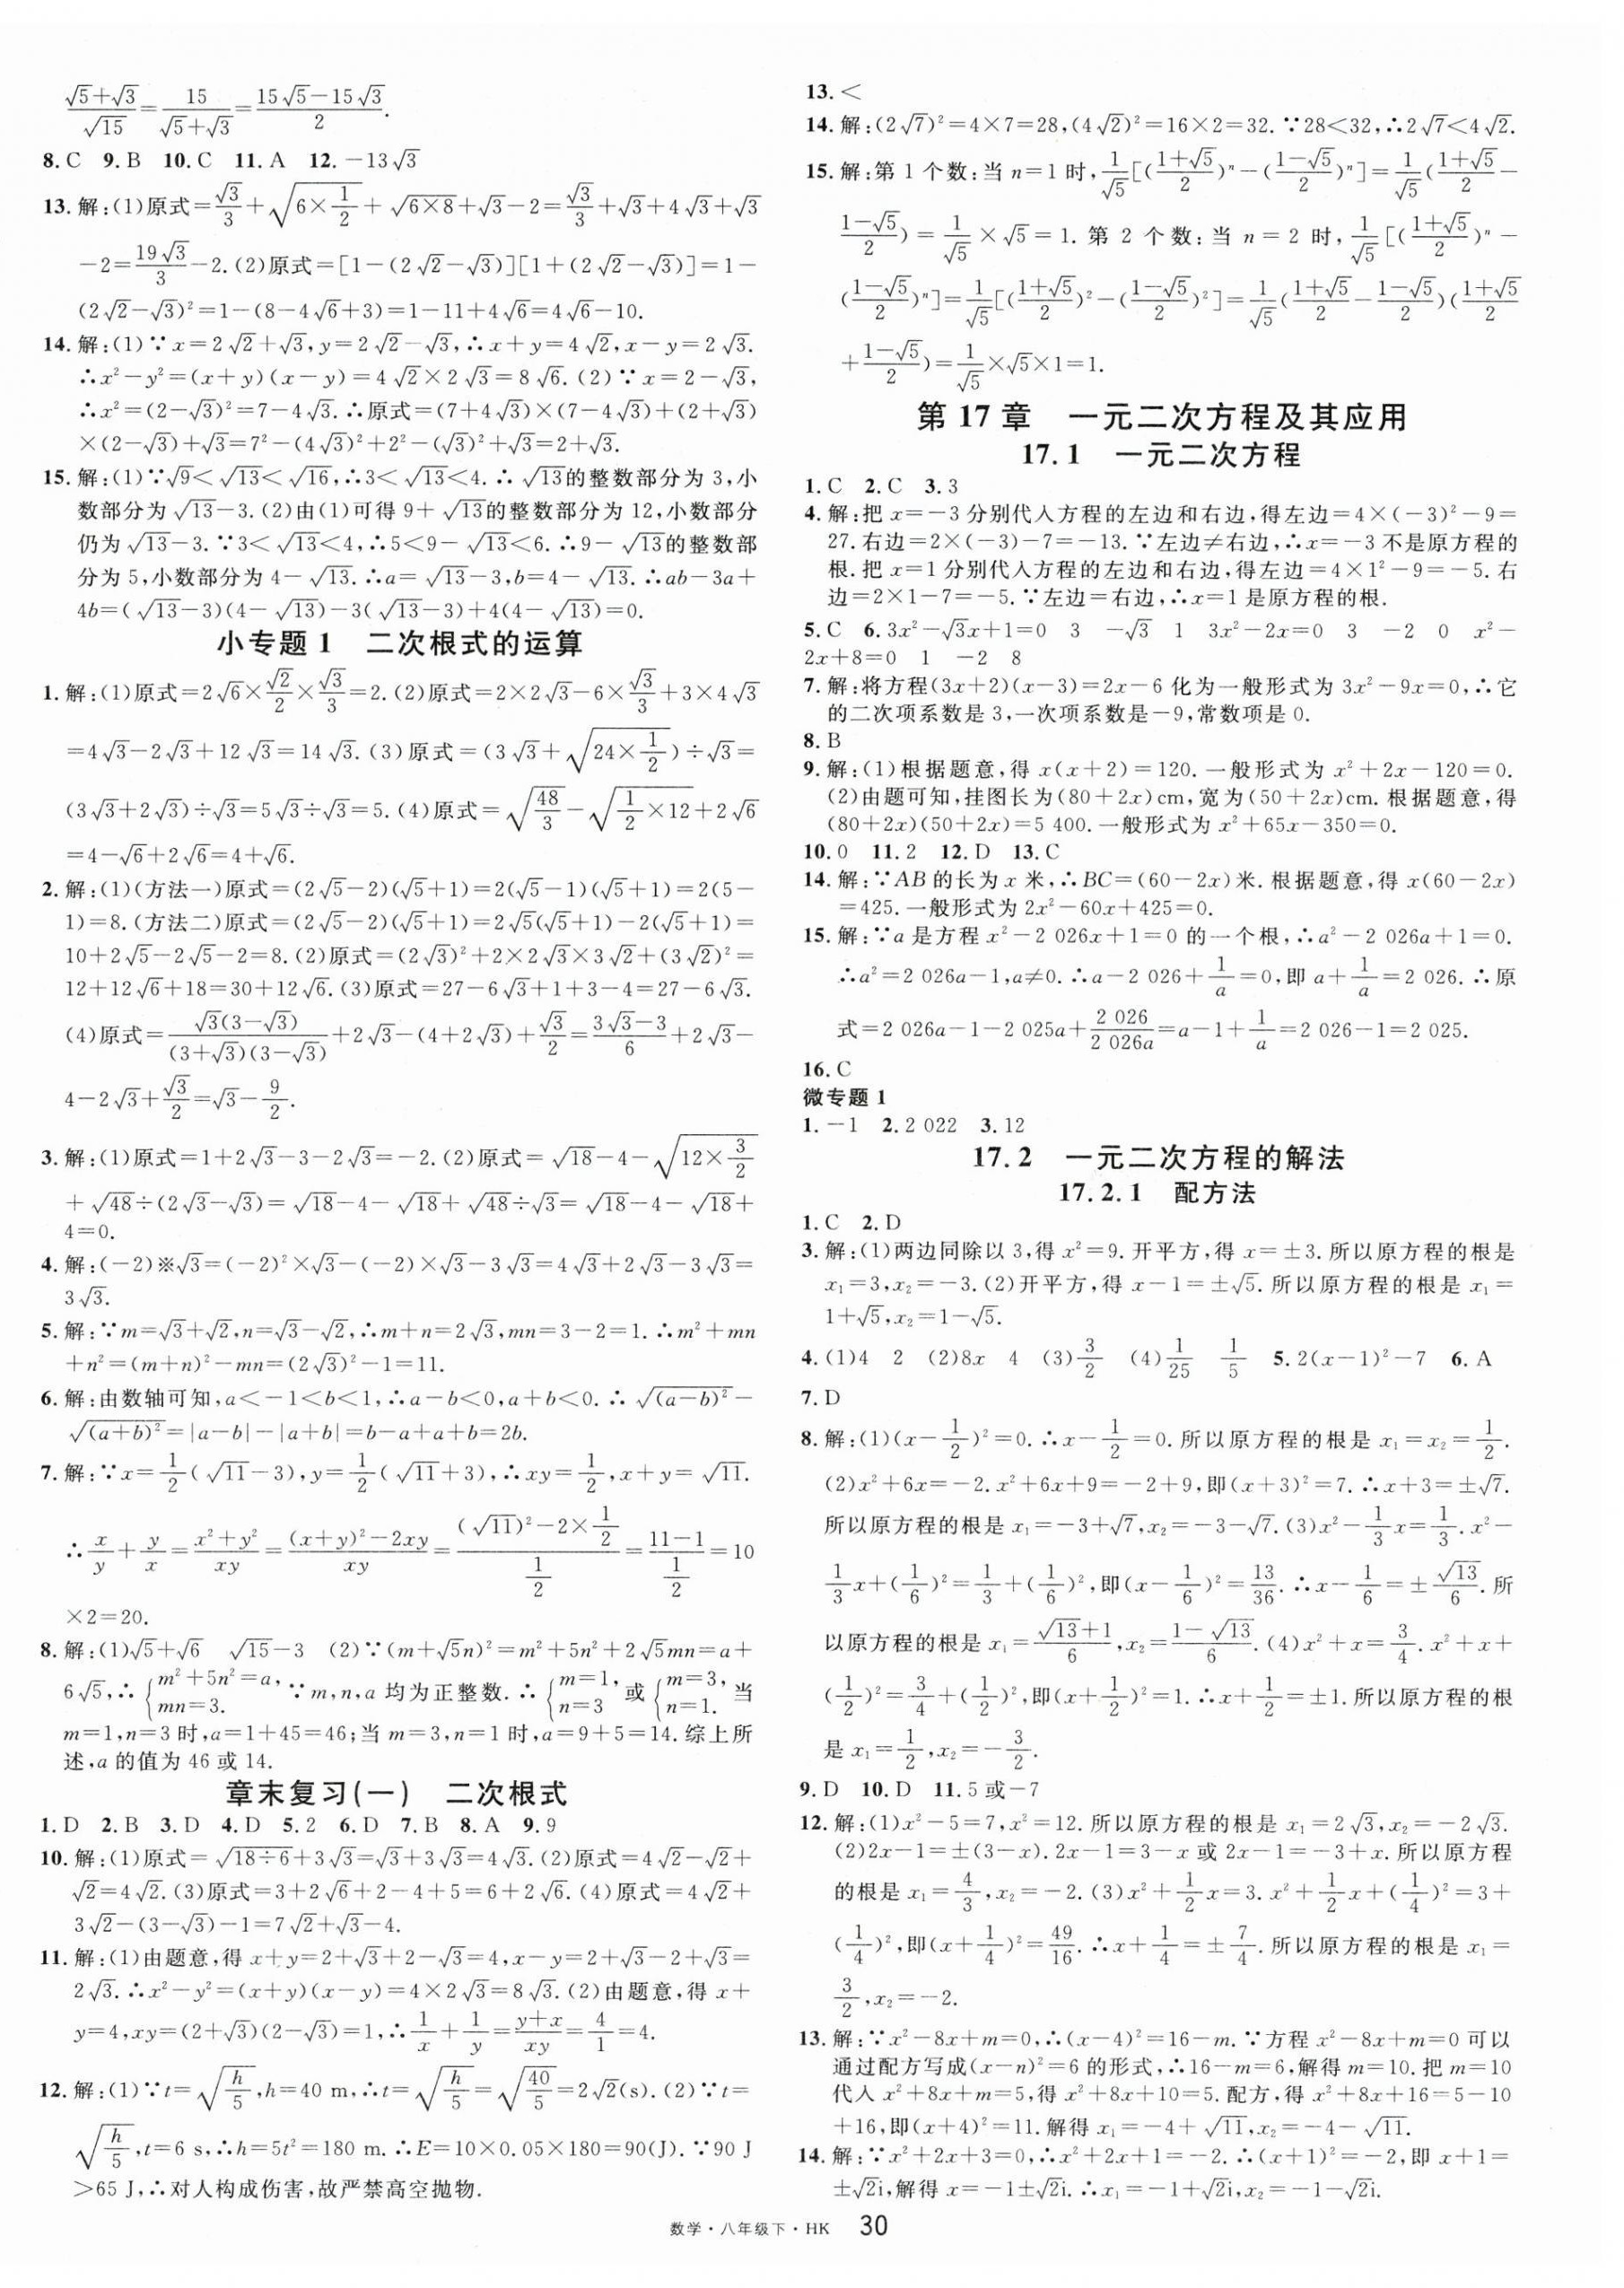 (√5+√3)/√15=15/(√5+√3)=(15√5-15√3)/2.
8.C 9.B 10.C 11.A 12.-13√3
13.解:(1)原式=√3/3+√(6×1/2)+√(6×8)+√3-2=√3/3+√3+4√3+√3
-2=19√3/3-2.(2)原式=[1-(2√2-√3)][1+(2√2-√3)]=1-
(2√2-√3)²=1-(8-4√6+3)=1-11+4√6=4√6-10.
14.解:(1)∵x=2√2+√3,y=2√2-√3,∴x+y=4√2,x-y=2√3.
∴x²-y²=(x+y)(x-y)=4√2×2√3=8√6.(2)∵x=2-√3,
∴x²=(2-√3)²=7-4√3.∴原式=(7+4√3)×(7-4√3)+(2+√3)
×(2-√3)+√3=7²-(4√3)²+2²-(√3)²+√3=2+√3.
15.解:(1)∵√9<√13<√16,∴3<√13<4.∴√13的整数部分为3,小
数部分为√13-3.(2)由(1)可得9+√13的整数部分为12,小数部分
仍为√13-3.∵3<√13<4,∴5<9-√13<6.∴9-√13的整数部
分为5,小数部分为4-√13.∴a=√13-3,b=4-√13.∴ab-3a+
4b=(√13-3)(4-√13)-3(√13-3)+4(4-√13)=0.
小专题1 二次根式的运算
1.解:(1)原式=2√6×√2/2×√3/3=2.(2)原式=2×2√3-6×√3/3+3×4√3
=4√3-2√3+12√3=14√3.(3)原式=(3√3+√(24×1/2))÷√3=
(3√3+2√3)÷√3=5√3÷√3=5.(4)原式=√(48/3)-√(1/2×12)+2√6
=4-√6+2√6=4+√6.
2.解:(1)(方法一)原式=(2√5-2)(√5+1)=2(√5-1)(√5+1)=2(5-
1)=8.(方法二)原式=(2√5-2)(√5+1)=2√5(√5+1)-2(√5+1)=
10+2√5-2√5-2=8.(2)原式=(2√3)²+2×2√3×3√2+(3√2)²=
12+12√6+18=30+12√6.(3)原式=27-6√3+1+3-4=27-6√3.
(4)原式=√3(3-√3)/((3+√3)(3-√3))+2√3-(4+2√3)+√3/2=(3√3-3)/6+2√3-
4-2√3+√3/2=√3-9/2.
3.解:(1)原式=1+2√3-3-2√3=-2.(2)原式=√18-4-√(12×3/2)
+√48÷(2√3-√3)=√18-4-√18+√48÷√3=√18-4-√18+
4=0.
4.解:(-2)※√3=(-2)²×√3-(-2)×√3-3√3=4√3+2√3-3√3=
3√3.
5.解:∵m=√3+√2,n=√3-√2,∴m+n=2√3,mn=3-2=1.∴m²+mn
+n²=(m+n)²-mn=(2√3)²-1=11.
6.解:由数轴可知,a<-1<b<1,∴a-b<0,a+b<0.∴√(a-b)²-
√(a+b)²=|a-b|-|a+b|=b-a+a+b=2b.
7.解:∵x=1/2(√11-3),y=1/2(√11+3),∴xy=1/2,x+y=√11.
∴x/y+y/x=(x²+y²)/xy=((x+y)²-2xy)/xy=((√11)²-2×1/2)/(1/2)=(11-1)/(1/2)=10
×2=20.
8.解:(1)√5+√6 √15-3 (2)∵(m+√5n)²=m²+5n²+2√5mn=a+
6√5,∴{m²+5n²=a, mn=3. ∵m,n,a均为正整数.∴{m=1, n=3 或{m=3, n=1. 当
m=1,n=3时,a=1+45=46;当m=3,n=1时,a=9+5=14.综上所
述,a的值为46或14.
章末复习(一) 二次根式
1.D 2.B 3.D 4.D 5.2 6.D 7.B 8.A 9.9
10.解:(1)原式=√(18÷6)+3√3=√3+3√3=4√3.(2)原式=4√2-√2+
√2=4√2.(3)原式=3+2√6+2-4+5=6+2√6.(4)原式=4√2+
3√2-(3-√3)-1=7√2+√3-4.
11.解:(1)由题意,得x+y=2+√3+2-√3=4,x-y=2+√3-2+√3=
2√3.∴x²-y²=(x+y)(x-y)=4×2√3=8√3.(2)由题意,得x+
y=4,xy=(2+√3)(2-√3)=1,∴1/x+1/y=(y+x)/xy=4/1=4.
12.解:(1)∵t=√(h/5),h=40 m,∴t=√(h/5)=√(40/5)=2√2(s).(2)∵t=
√(h/5),t=6 s,∴h=5t²=180 m.∴E=10×0.05×180=90(J).∵90 J
>65 J,∴对人构成伤害,故严禁高空抛物.
13.<
14.解:(2√7)²=4×7=28,(4√2)²=16×2=32.∵28<32,∴2√7<4√2.
15.解:第1个数:当n=1时,1/√5[((1+√5)/2)ⁿ-((1-√5)/2)ⁿ]=1/√5((1+√5)/2-
(1-√5)/2)=1/√5×√5=1.第2个数:当n=2时,1/√5[((1+√5)/2)ⁿ-
((1-√5)/2)ⁿ]=1/√5[((1+√5)/2)²-((1-√5)/2)²]=1/√5((1+√5)/2-(1-√5)/2)((1+√5)/2
+(1-√5)/2)=1/√5×√5×1=1.
第17章 一元二次方程及其应用
17.1 一元二次方程
1.C 2.C 3.3
4.解:把x=-3分别代入方程的左边和右边,得左边=4×(-3)²-9=
27.右边=2×(-3)-7=-13.∵左边≠右边,∴x=-3不是原方程的
根.把x=1分别代入方程的左边和右边,得左边=4×1²-9=-5.右
边=2×1-7=-5.∵左边=右边,∴x=1是原方程的根.
5.C 6.3x²-√3x+1=0 3 -√3 1 3x²-2x=0 3 -2 0 x²-
2x+8=0 1 -2 8
7.解:将方程(3x+2)(x-3)=2x-6化为一般形式为3x²-9x=0,∴它
的二次项系数是3,一次项系数是-9,常数项是0.
8.B
9.解:(1)根据题意,得x(x+2)=120.一般形式为x²+2x-120=0.
(2)由题可知,挂图长为(80+2x)cm,宽为(50+2x)cm.根据题意,得
(80+2x)(50+2x)=5 400.一般形式为x²+65x-350=0.
10.0 11.2 12.D 13.C
14.解:∵AB的长为x米,∴BC=(60-2x)米.根据题意,得x(60-2x)
=425.一般形式为2x²-60x+425=0.
15.解:∵a是方程x²-2 026x+1=0的一个根,∴a²-2 026a+1=0.
∴a²=2 026a-1,a≠0.∴a-2 026+1/a=0,即a+1/a=2 026.∴原
式=2 026a-1-2 025a+2 026/2 026a=a-1+1/a=2 026-1=2 025.
16.C
微专题1
1.-1 2.2 022 3.12
17.2 一元二次方程的解法
17.2.1 配方法
1.C 2.D
3.解:(1)两边同除以3,得x²=9.开平方,得x=±3.所以原方程的根是
x₁=3,x₂=-3.(2)开平方,得x-1=±√5.所以原方程的根是x₁=
1+√5,x₂=1-√5.
4.(1)4 2 (2)8x 4 (3)3/2 (4)1/25 1/5 5.2(x-1)²-7 6.A
7.D
8.解:(1)(x-1/2)²=0.∴x-1/2=0.所以原方程的根是x₁=x₂=1/2.
(2)x²+6x=-2.x²+6x+9=-2+9,即(x+3)²=7.∴x+3=±√7.
所以原方程的根是x₁=-3+√7,x₂=-3-√7.(3)x²-1/3x=1/3.x²-
1/3x+(1/6)²=1/3+(1/6)²,即(x-1/6)²=13/36.∴x-1/6=±√13/6.所
以原方程的根是x₁=(√13+1)/6,x₂=(1-√13)/6.(4)x²+x=3/4.x²+x+
(1/2)²=3/4+(1/2)²,即(x+1/2)²=1.∴x+1/2=±1.所以原方程的根
是x₁=1/2,x₂=-3/2.
9.D 10.D 11.5或-7
12.解:(1)x²-5=7,x²=12.所以原方程的根是x₁=2√3,x₂=-2√3.
(2)2x-1=±(3-x).2x-1=3-x或2x-1=-3+x.所以原方程
的根是x₁=4/3,x₂=-2.(3)x²+1/2x=3.x²+1/2x+(1/4)²=3+
(1/4)²,即(x+1/4)²=49/16.∴x+1/4=±7/4.所以原方程的根是x₁=
3/2,x₂=-2.
13.解:∵x²-8x+m=0,∴(x-4)²=16-m.∵方程x²-8x+m=0可以
通过配方写成(x-n)²=6的形式,∴16-m=6,解得m=10.把m=10
代入x²+8x+m=5,得x²+8x+10=5.配方,得x²+8x+16=5-10
+16,即(x+4)²=11.解得x₁=-4+√11,x₂=-4-√11.
14.解:∵x²+2x+3=0,∴x²+2x+1=-2.∴(x+1)²=-2,即x+1=
±√2i,解得x=-1±√2i.∴x₁=-1+√2i,x₂=-1-√2i.
数学·八年级下·HK 30